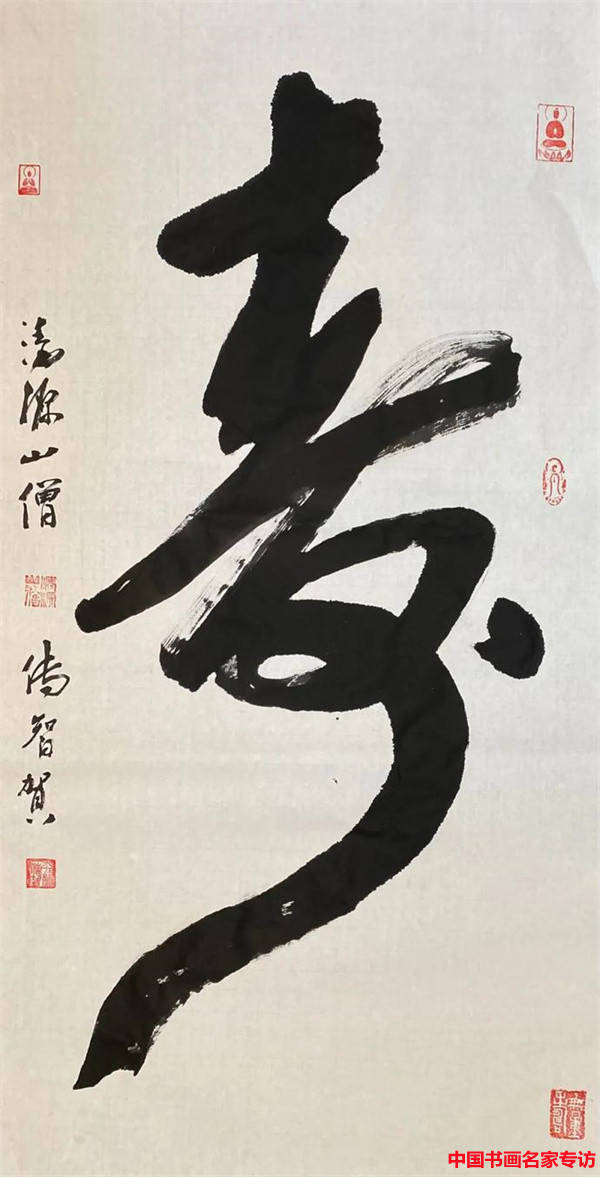 寿
清源山僧
传智贺
中国书画名家专访